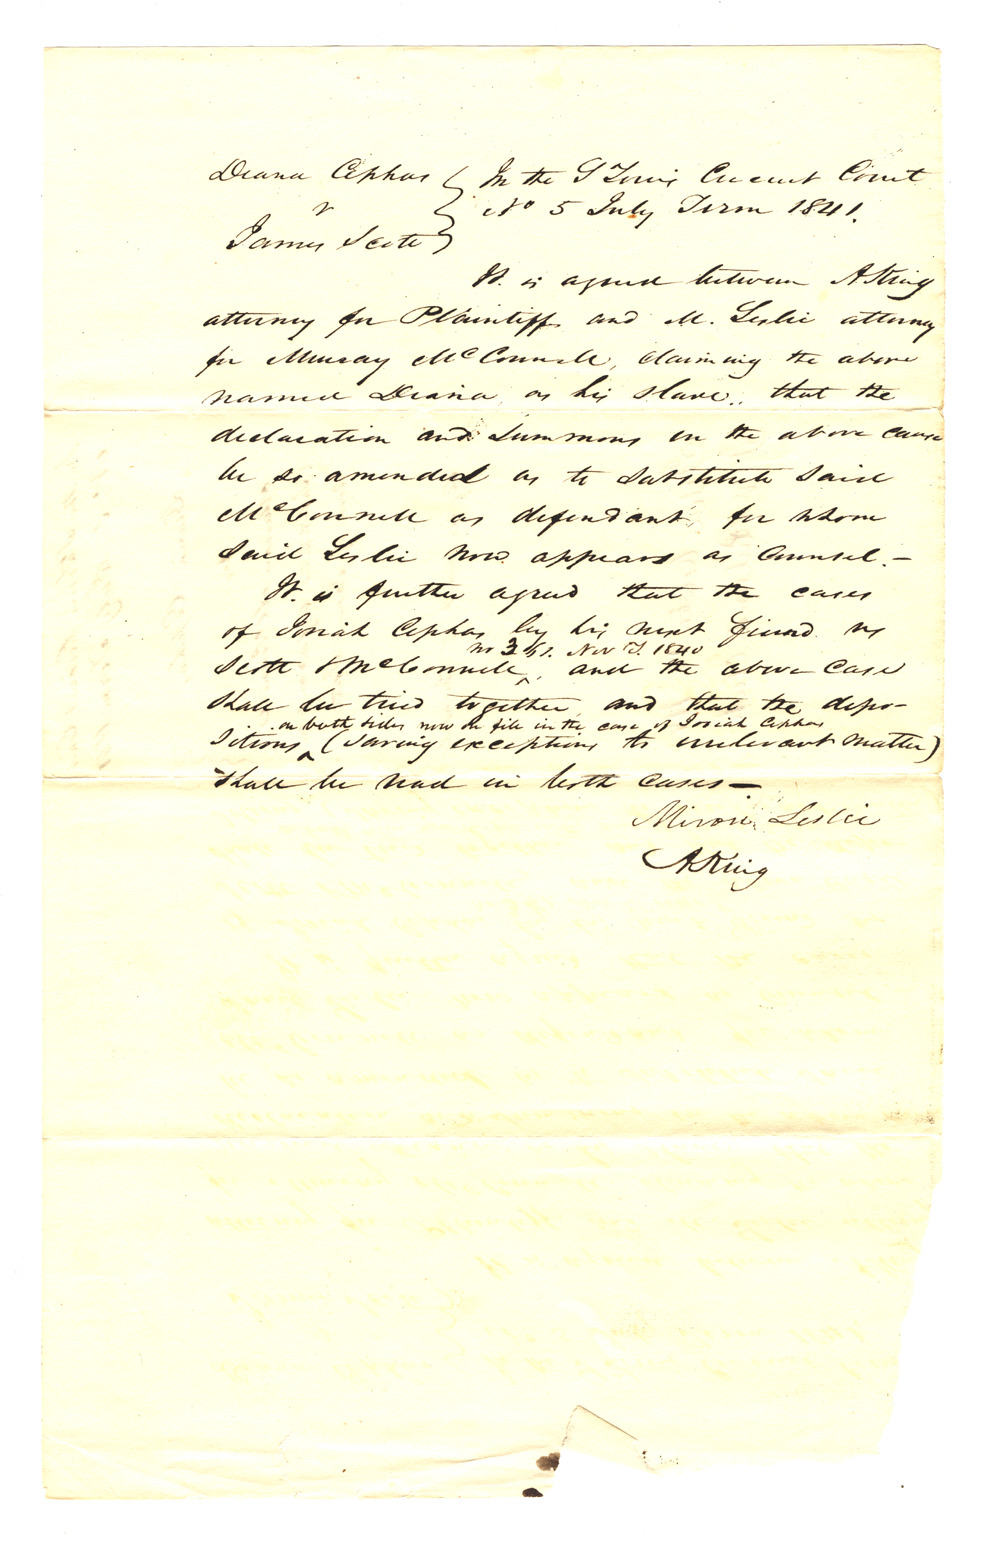 Diana Cephas } In the S Louis Circuit Court
v } No 5 July Term 1841.
James Scott }
It is agreed between A King
attorney for Plaintiff and M. Leslie attorney
for Murray McConnell, claiming the above
named Diana, as his slave, that the
declaration and summons in the above cause
be so amended as to substitute said
McConnell as defendant, for whom
said Leslie now appears as counsel. —
It is further agreed that the cases
of Josiah Cephas by his next friend vs
no 351. Nov T. 1840
Scott & McConnell ^, and the above case
shall be tried together, and that the depo-
on both sides now on file in the case of Josiah Cephas
sitions ^ (saving exceptions to irrelevant matter)
shall be read in both cases —
Miron Leslie
A King